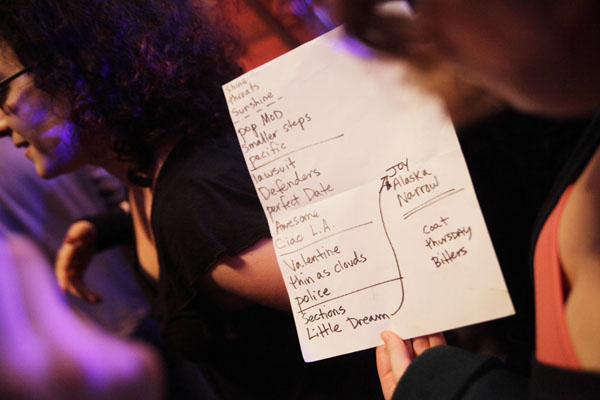 Shine
threats
Sunshine
pop MoD
Smaller steps
pacific
lawsuit
Defenders
perfect Date
Awesome
Ciao L.A.
Valentine
thin as clouds
police
Sections
Little Dream
JOY
Alaska
Narrow
Coat
thursday
Bitters